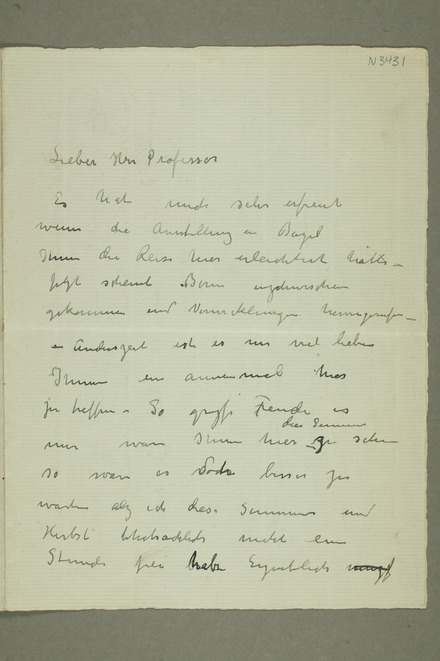 N3431
Lieber Herr Professor
Es hat mich sehr erfreut
wenn die Ausstellung in Basel
Ihnen die Reise hier erleichtert hätte –
Jetzt scheint Bern
gekommen und Verwicklungen hervorgerufen –
Andrerseit ist es mir viel lieber
Ihnen ein annermal hier
zu treffen – So große Freude es
dies Sommer
mir wäre Ihnen hier zu sehen
so wäre es doch besser zu
warten als ich diese Sommer und
Herbst thatsächlich nicht eine
Stunde frei habe Eigentlich